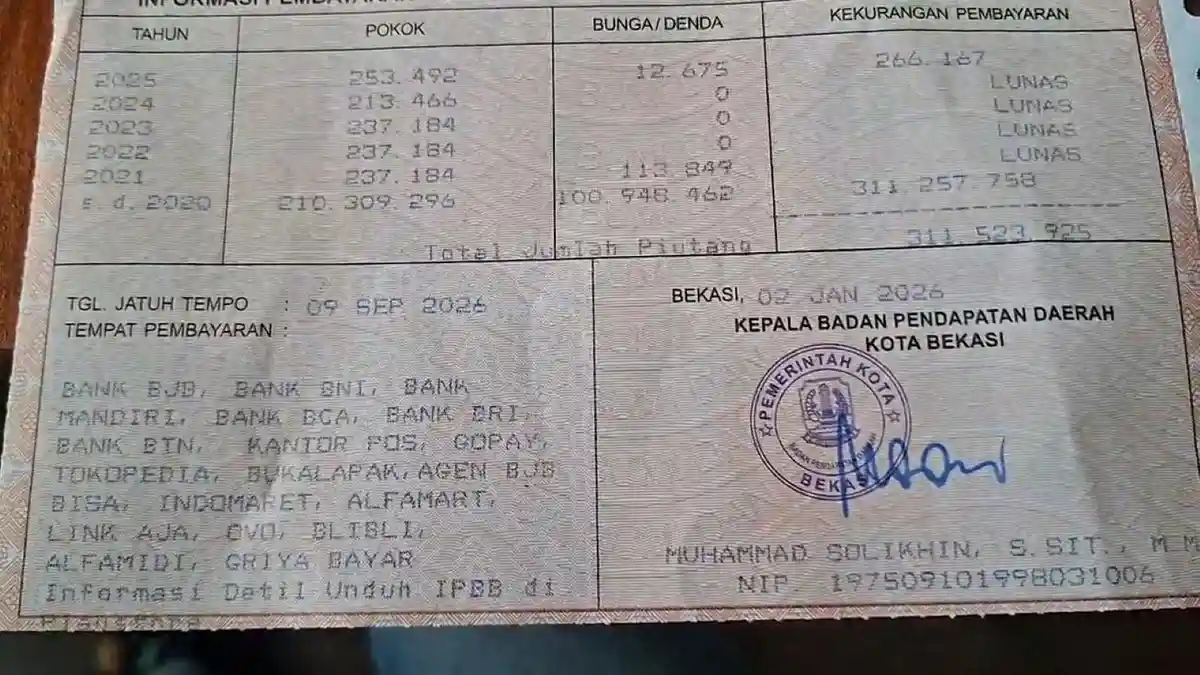 INFORMASI PEMBAYARAN
TAHUN POKOK BUNGA/DENDA KEKURANGAN PEMBAYARAN
2025 253.492 12.675 266.167
2024 213.466 0 LUNAS
2023 237.184 0 LUNAS
2022 237.184 0 LUNAS
2021 237.184 113.849 LUNAS
s.d.2020 210.309.296 100.948.462 311.257.758
Total Jumlah Piutang 311.523.925
TGL. JATUH TEMPO : 09 SEP 2026
TEMPAT PEMBAYARAN :
BANK BJB, BANK BNI, BANK
MANDIRI, BANK BCA, BANK BRI,
BANK BTN, KANTOR POS, GOPAY,
TOKOPEDIA, BUKALAPAK,AGEN BJB
BISA, INDOMARET, ALFAMART,
LINK AJA, OVO, BLIBLI,
ALFAMIDI, GRIYA BAYAR
Informasi Detil Unduh IPBB di
BEKASI, 02 JAN 2026
KEPALA BADAN PENDAPATAN DAERAH
KOTA BEKASI
PEMERINTAH KOTA
BEKASI
MUHAMMAD SOLIKHIN, S.SIT., M.M
NIP. 197509101998031006